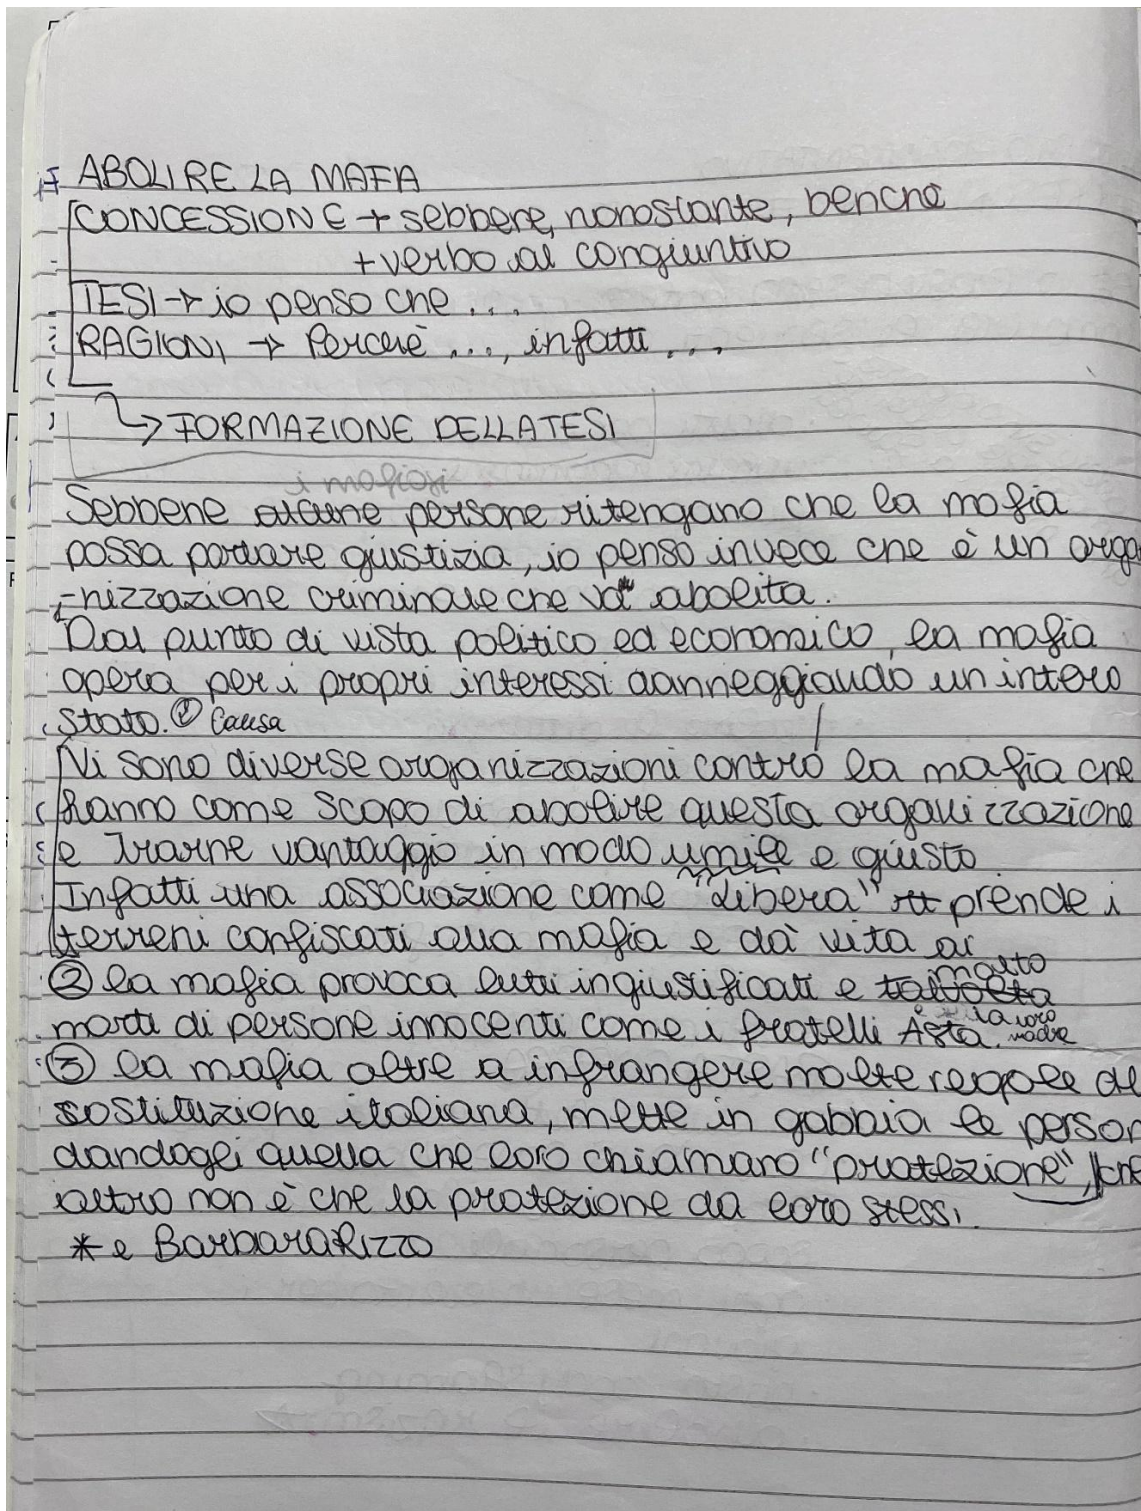 ABOLIRE LA MAFIA
CONCESSIONE → sebbene, nonostante, benché
+ verbo al congiuntivo
TESI → io penso che ...
RAGIONI → Perché ..., infatti ...
↳ FORMAZIONE DELLA TESI
i mafiosi
Sebbene alcune persone ritengano che la mafia
possa portare giustizia, io penso invece che è un orga
-nizzazione criminale che va abolita.
Dal punto di vista politico ed economico, la mafia
opera per i propri interessi danneggiando un intero
stato. ① Causa
Vi sono diverse organizzazioni contro la mafia che
hanno come scopo di abolire questa organizzazione
e trarne vantaggio in modo umile e giusto
Infatti una associazione come "Libera" prende i
terreni confiscati alla mafia e dà vita ai
molto
② la mafia provoca lutti ingiustificati e talvolta
e * la loro madre
morti di persone innocenti come i fratelli Asta.
③ la mafia oltre a infrangere molte regole del
sostituzione italiana, mette in gabbia le person
dandogli quella che loro chiamano "protezione", che
altro non è che la protezione da loro stessi.
* e Barbara Rizzo